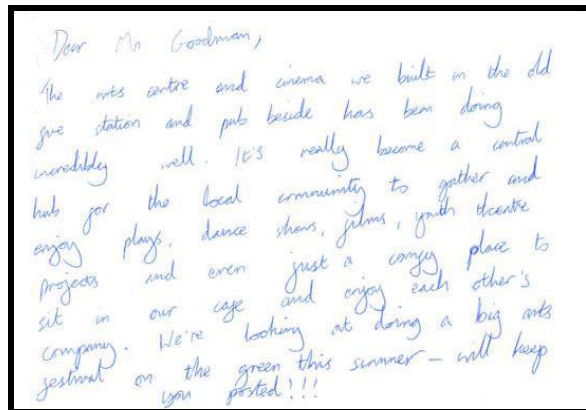 Dear Mr Goodman,
The arts centre and cinema we built in the old
fire station and pub beside has been doing
incredibley well. It's really become a central
hub for the local community to gather and
enjoy plays, dance shows, films, youth theatre
projects and even just a comfy place to
sit in our cafe and enjoy each other's
company. We're looking at doing a big arts
festival on the green this summer – will keep
you posted!!!